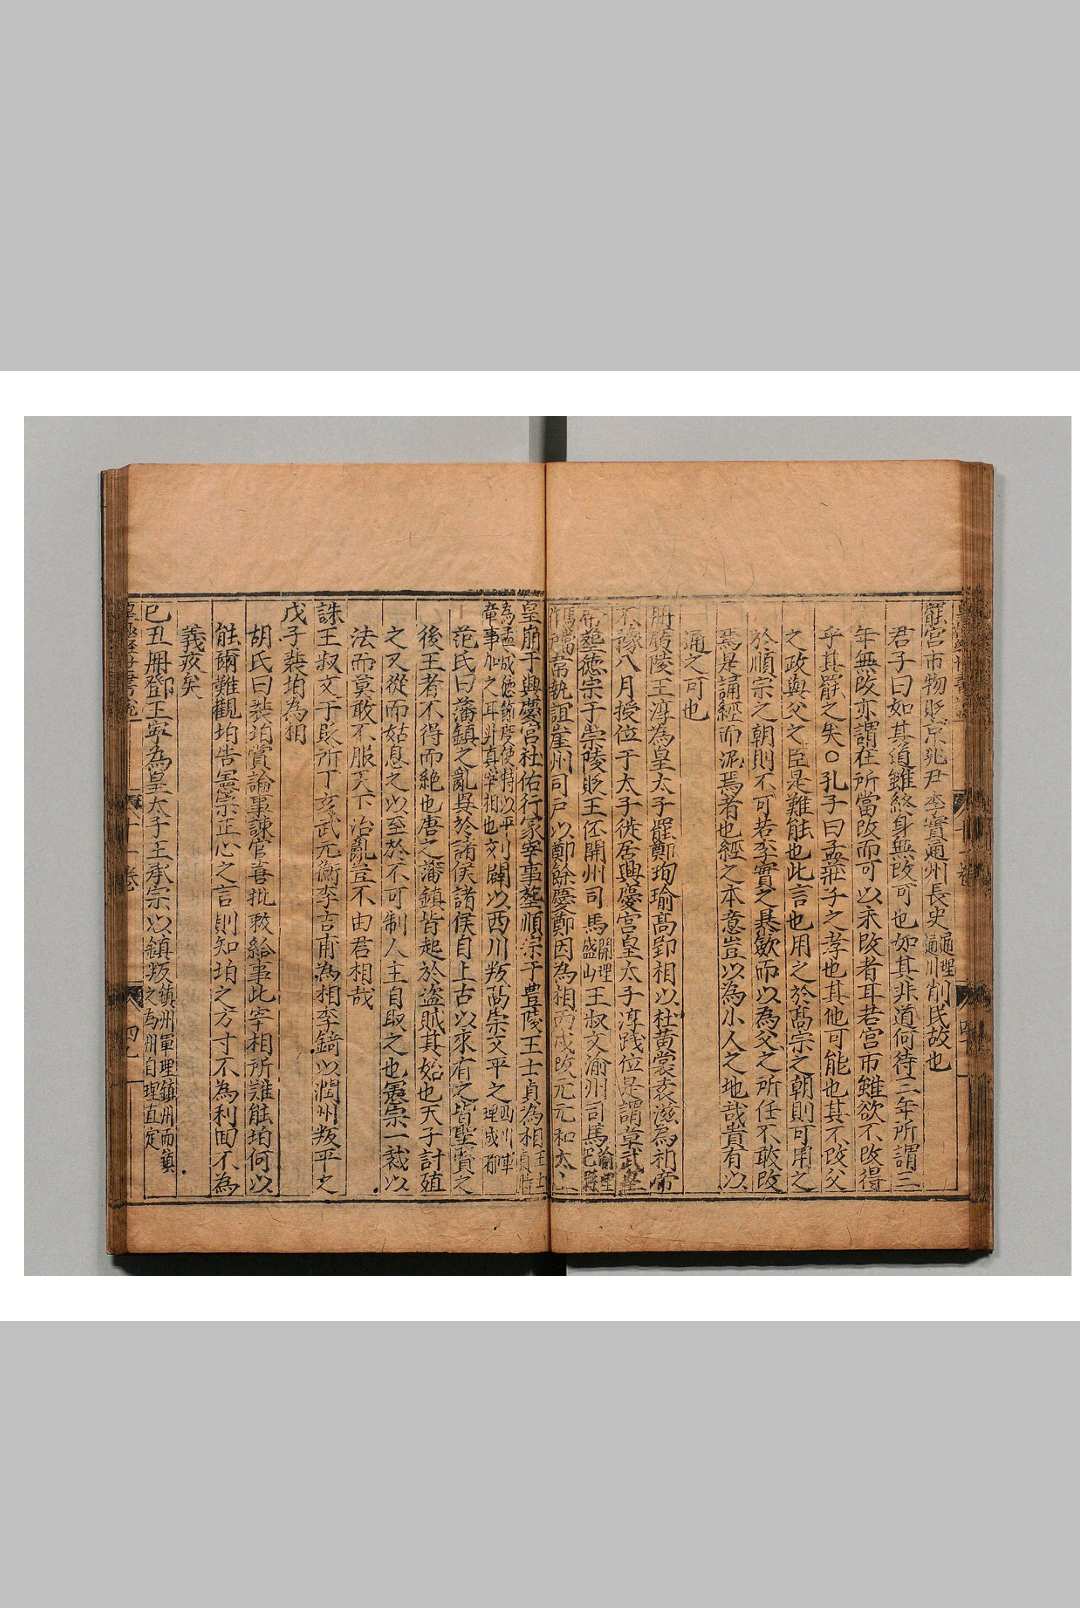 罷宮市物貶京兆尹李實通州長史通理通川削民故也
君子曰如其道雖終身無改可也如其非道何待三年所謂三
年無改亦謂在所當改而可以未改者耳若宮市雖欲不改得
乎其罷之矣○孔子曰孟莊子之孝也其他可能也其不改父
之政與父之臣是難能也此言也用之於高宗之朝則可用之
於順宗之朝則不可若李實之暴歛而以為父之所任不敢改
焉是誦經而泥焉者也經之本意豈以為小人之地哉貴有以
通之可也
冊廣陵王淳為皇太子罷鄭珣瑜高郢相以杜黃裳袁滋為相帝
不豫八月授位于太子徙居興慶宮皇太子淳踐位是謂章武皇
帝塟德宗于崇陵貶王伾開州司馬開理盛山王叔文渝州司馬渝理巴縣
常執誼崖州司戶以鄭餘慶鄭因為相丙戌改元元和太上
皇崩于興慶宮杜佑行冢宰事塟順宗于豊陵王士貞為相
章事加之耳非真宰相也刘闢以西川叛高崇文平之西川軍理成都
范氏曰藩鎮之亂異於諸侯諸侯自上古以來有之皆聖賢之
後王者不得而絶也唐之藩鎮皆起於盗賊其始也天子計殖
之又從而姑息之以至於不可制人主自取之也憲宗一裁以
法而莫敢不服天下治亂豈不由君相哉
誅王叔文于貶所丁亥武元衡李吉甫為相李錡以潤州叛平之
戊子裴垍為相
胡氏曰裴垍賞論軍諫官善批敕給事此宰相所難能垍何以
能爾難觀垍告憲宗正心之言則知垍之方寸不為利回不為
義疚矣
己丑冊鄧王寧為皇太子王承宗以鎮叛鎮州軍理鎮州而鎮之為州自理直定